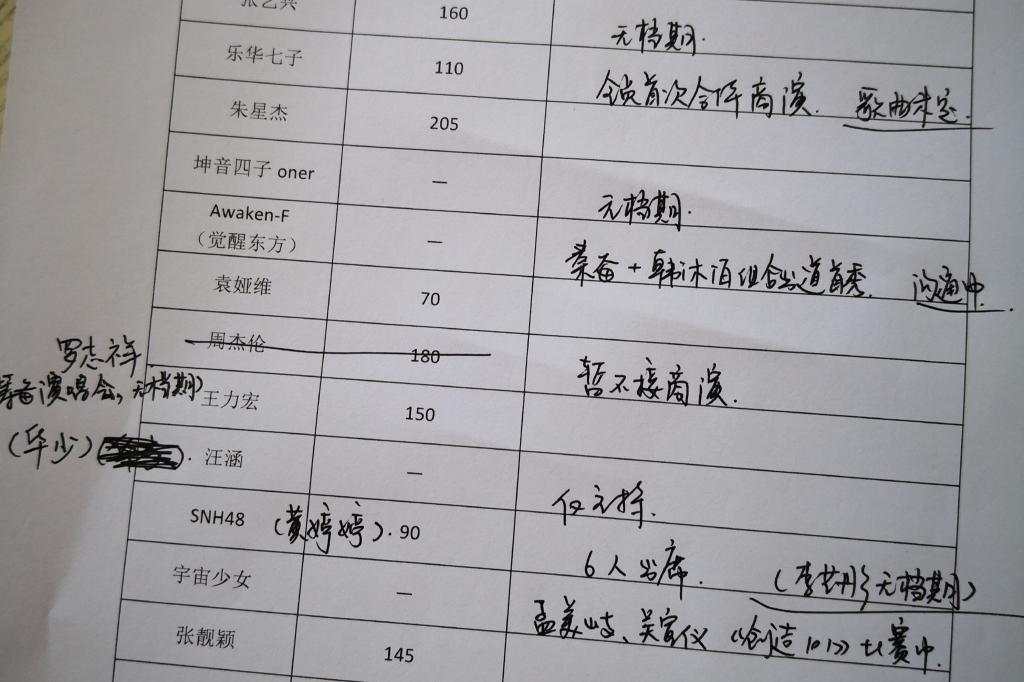 张艺兴 160 无档期.
乐华七子 110 全员首次合体商演. 歌曲未定.
朱星杰 205
坤音四子 oner — 无档期.
Awaken-F
（觉醒东方） — 秦奋+韩沐伯组合出道首秀. 沟通中.
袁娅维 70
周杰伦 180 暂不接商演.
罗志祥
筹备演唱会，无档期)
王力宏 150
(华少) 汪涵 — 仅主持.
SNH48 (黄婷婷). 90 6人出席. (李艺彤无档期)
宇宙少女 — 孟美岐、吴宣仪《创造101》比赛中.
张靓颖 145